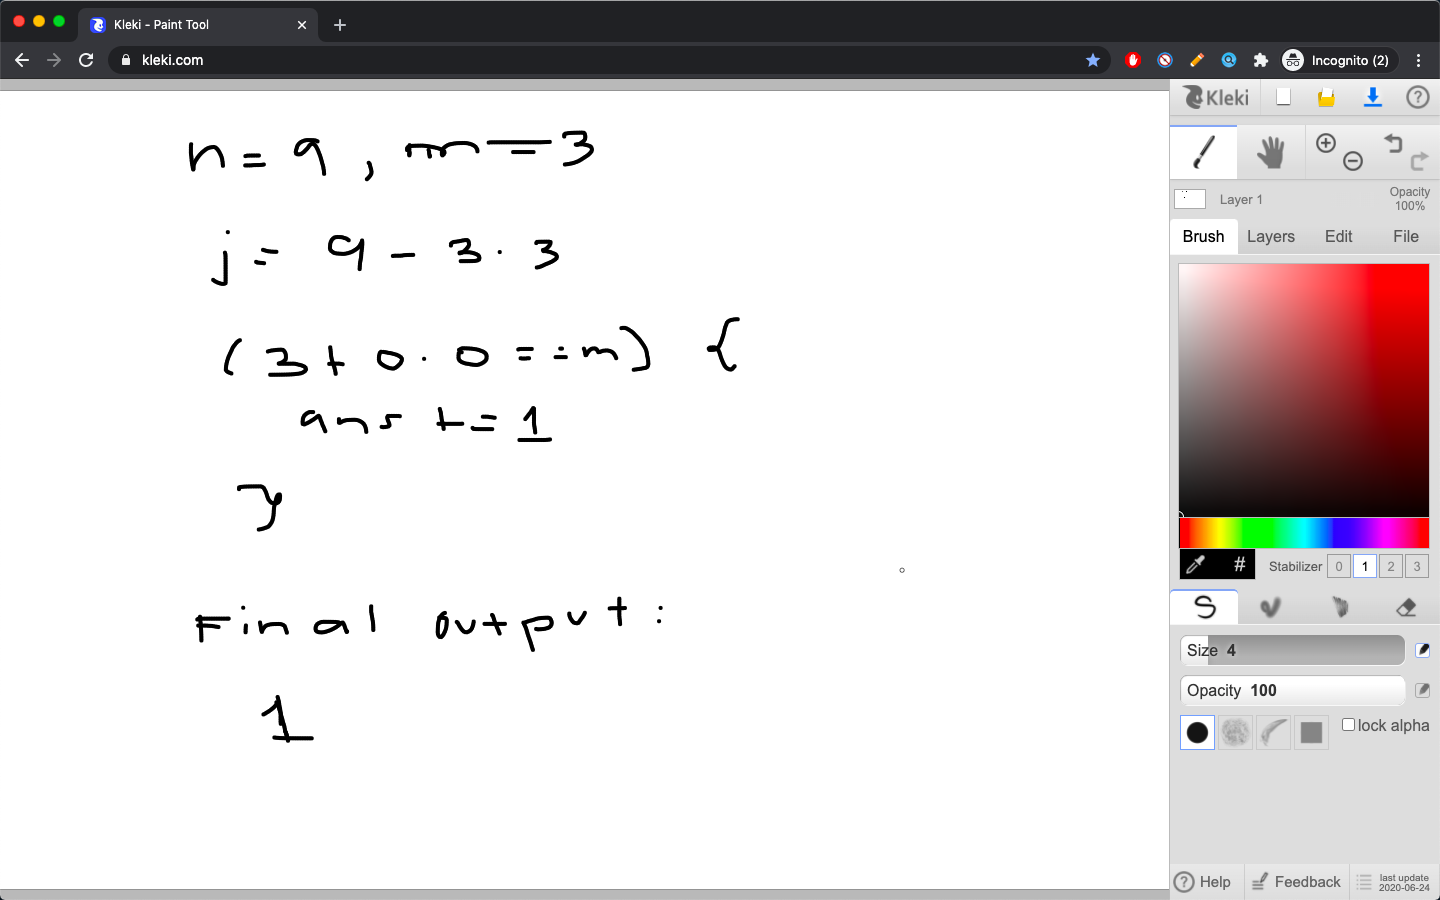 Kleki - Paint Tool
kleki.com
Incognito (2)
n = 9 , m = 3
j = 9 - 3 . 3
( 3 + 0 . 0 = = m ) {
ans += 1
}
Final output :
1
Kleki
Layer 1
Opacity
100%
Brush Layers Edit File
# Stabilizer 0 1 2 3
Size 4
Opacity 100
lock alpha
Help Feedback last update
2020-06-24